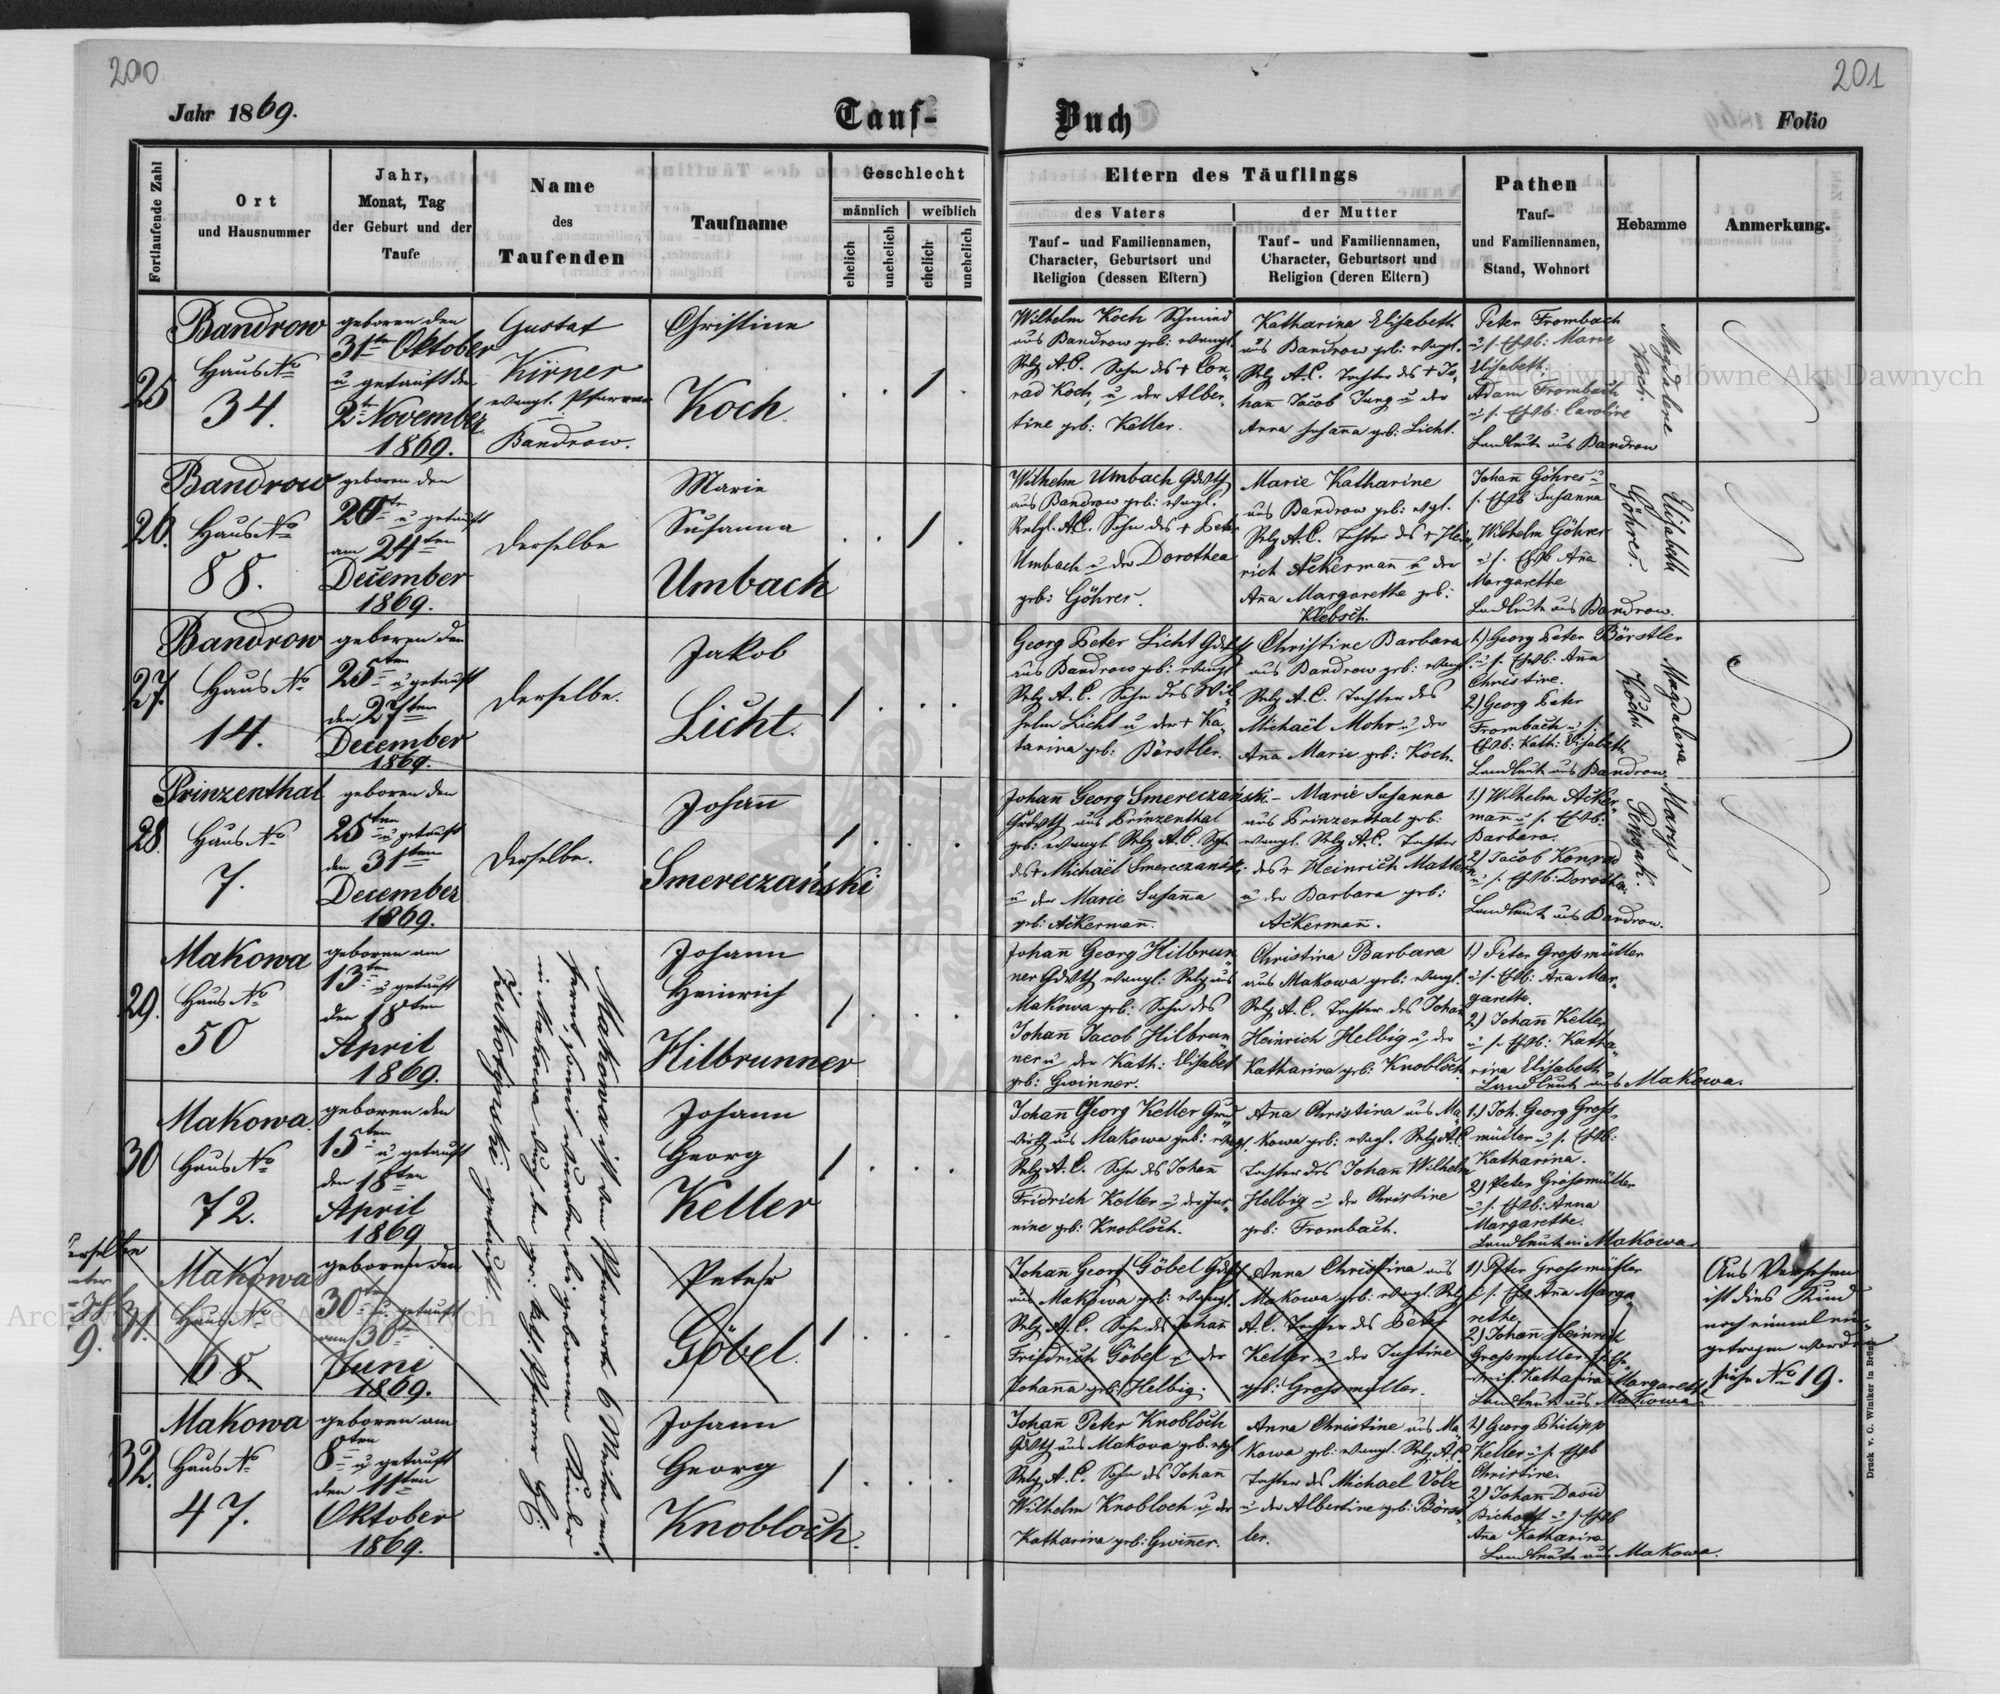 200
201
Jahr 1869.
Tauf-
Buch
Folio
Fortlaufende Zahl
Ort
und Hausnummer
Jahr,
Monat, Tag
der Geburt und der
Taufe
Name
des
Taufenden
Taufname
Geschlecht
männlich
weiblich
ehelich
unehelich
ehelich
unehelich
Eltern des Täuflings
des Vaters
Tauf- und Familiennamen,
Character, Geburtsort und
Religion (dessen Eltern)
der Mutter
Tauf- und Familiennamen,
Character, Geburtsort und
Religion (deren Eltern)
Pathen
Tauf-
und Familiennamen,
Stand, Wohnort
Hebamme
Anmerkung.
25
Bandrow
Haus No
34.
geboren den
31ten Oktober
u getauft den
2ten November
1869.
Gustaf
Kirner
evangl. Pfarrer
Bandrow.
Christine
Koch.
1
Wilhelm Koch Schmied
aus Bandrow geb: evangl.
Relg A.C. Sohn des + Con-
rad Koch, u der Alber-
tine geb: Keller.
Katharina Elisabeth
aus Bandrow geb: evagl.
Relg A.C. Tochter des + Jo-
hann Jacob Jung u der
Anna Susanna geb: Licht.
Peter Frombach
u s. Ehwb: Marie
Elisabeth.
Adam Frombach
u s. Ehwb: Caroline
Landleute aus Bandrow
Magdalene
Koch.
26.
Bandrow
Haus No
88.
geboren den
20te u getauft
am 24ten
December
1869.
Derselbe
Marie
Susanna
Umbach
1
Wilhelm Umbach Gdwth
aus Bandrow geb: evagl.
Relgl. A.C. Sohn des + Peter
Umbach u der Dorothea
geb: Göhres.
Marie Katharine
aus Bandrow geb: evgl.
Relg A.C. Tochter des + Hein-
rich Ackermann u der
Anna Margarethe geb:
Klebsch.
Johann Göhres u
s. Ehwb Susanna
Wilhelm Göhres
u s. Ehwb Anna
Margarethe
Landleute aus Bandrow.
Elisabeth
Göhres.
27.
Bandrow
Haus No
14.
geboren den
25ten u getauft
den 27ten
December
1869.
Derselbe.
Jakob
Licht.
1
Georg Peter Licht Gdwth
aus Bandrow geb: evangl
Relg A.C. Sohn des Wil-
helm Licht u der + Ka-
tarina geb: Börstler.
Christine Barbara
aus Bandrow geb: evangl.
Relg A.C. Tochter des
Michaël Mohr u der
Anna Marie geb: Koch.
1.) Georg Peter Börstler
u s. Ehwb: Anna
Christine.
2) Georg Peter
Frombach u s.
Ehwb: Kath: Elisabeth
Landleute aus Bandrow.
Magdalena
Koch.
28.
Prinzenthal
Haus No
7.
geboren den
25ten u getauft
den 31ten
December
1869.
Derselbe.
Johann
Smereczański
1
Johann Georg Smereczański
Grdwth aus Prinzenthal
geb: evangl Relg A.C. Sohn
des + Michaël Smereczański
u der Marie Susanna
geb: Ackermann.
Marie Susanna
aus Prinzenthal geb:
evangl. Relg A.C. Tochter
des + Heinrich Mattern
u der Barbara geb:
Ackermann.
1.) Wilhelm Acker-
man u s. Ehwb:
Barbara.
2) Jacob Konrad
u s. Ehwb: Dorothea
Landleute aus Bandrow.
29.
Makowa
Haus No
50
geboren am
13ten u getauft
den 18ten
April
1869.
Makowa ist vom Pfarrorte 6 Meilen ent-
fernt, somit wurden die geborenen Kinder
in Makowa durch den gr: kath: Pfarrer
getauft.
Johann
Heinrich
Hilbrunner
1
Johann Georg Hilbrun-
ner Gdwth evangl. Relg aus
Makowa geb: Sohn des
Johann Jacob Hilbrun-
ner u der Kath: Elisabet
geb: Gwinner.
Christina Barbara
aus Makowa geb: evangl.
Relg A.C. Tochter des Johann
Heinrich Helbig u der
Katharina geb: Knobloch.
1) Peter Grossmüller
u s. Ehwb: Ana Mar-
garethe.
2) Johann Keller
u s. Ehwb: Katha-
rina Elisabeth
Landleute aus Makowa.
30
Makowa.
Haus No
72.
geboren den
15ten u getauft
den 18ten
April
1869
Johann
Georg
Keller
1
Johann Georg Keller Grund-
wirth aus Makowa geb: evagl.
Relg A.C. Sohn des Johann
Fridrich Keller u der Jus-
tine geb: Knobloch.
Anna Christina aus Ma-
kowa geb: evagl. Relg A.C.
Tochter des Johann Wilhelm
Helbig u der Christine
geb: Frombach.
1.) Joh. Georg Gross-
müller u s. Ehwb:
Katharina.
2) Peter Grossmüller
u s. Ehwb: Anna
Margarethe.
Landleute in Makowa
9.
31.
Makowa
Haus No
68
geboren den
30ten u getauft
am 30ten
Juni
1869.
Peter
Göbel.
1
Johann Georg Göbel Gdwth
aus Makowa geb: evangl.
Relg A.C. Sohn des Johann
Friedrich Göbel u der
Johanna geb: Helbig.
Anna Christina aus
Makowa geb: evagl. Relg
A.C. Tochter des Peter
Keller u der Justine
geb: Grossmüller.
1) Peter Grossmüller
u s. Ehwb Ana Marga-
rethe.
2) Johann Heinrich
Grossmüller
Katharina Margarethe
Landleute aus Makowa
Aus Versehen
ist dies Kind
noch einmal ein-
getragen worden
siehe No 19.
32.
Makowa
Haus No
47.
geboren am
8ten u getauft
den 11ten
Oktober
1869.
Johann
Georg
Knobloch.
1
Johann Peter Knobloch
Gdwth aus Makowa geb. evgl
Relg A.C. Sohn des Johan
Wilhelm Knobloch u der
Katharina geb: Gwinner.
Anna Christine aus Ma-
kowa geb: evangl. Relg A.C.
Tochter des Michael Volz
u der Albertine geb: Börst-
ler.
1) Georg Philipp
Keller u s. Ehwb
Christine.
2) Johann David
Bischoff u s Ehwb
Ana Katharina
Landleute aus Makowa.
Druck v. C. Winiker in Brünn.
Archiwum Główne Akt Dawnych
Archiwum Główne Akt Dawnych